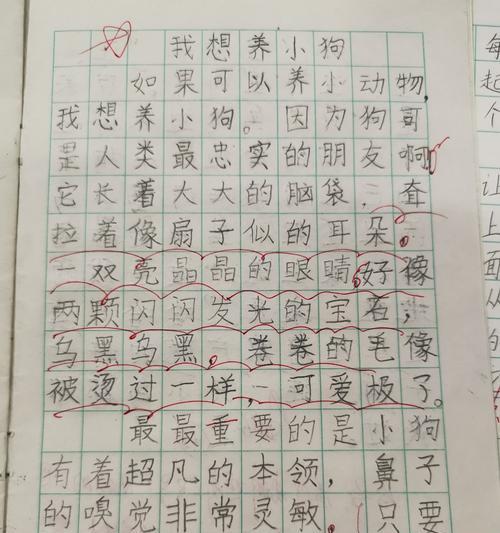 我想养小狗
如果可以养小动物,
我想养小狗。因为狗哥
是人类最忠实的朋友啊
它长着大大的脑袋,耷
拉着像扇子似的耳朵。
一双亮晶晶的眼睛,好像
两颗闪闪发光的宝石,
乌黑乌黑。卷卷的毛像
被烫过一样,可爱极了。
最最重要的是小狗
有着超凡的本领,鼻子
的嗅觉非常灵敏。(只要
每
起
个
让
上
面
从